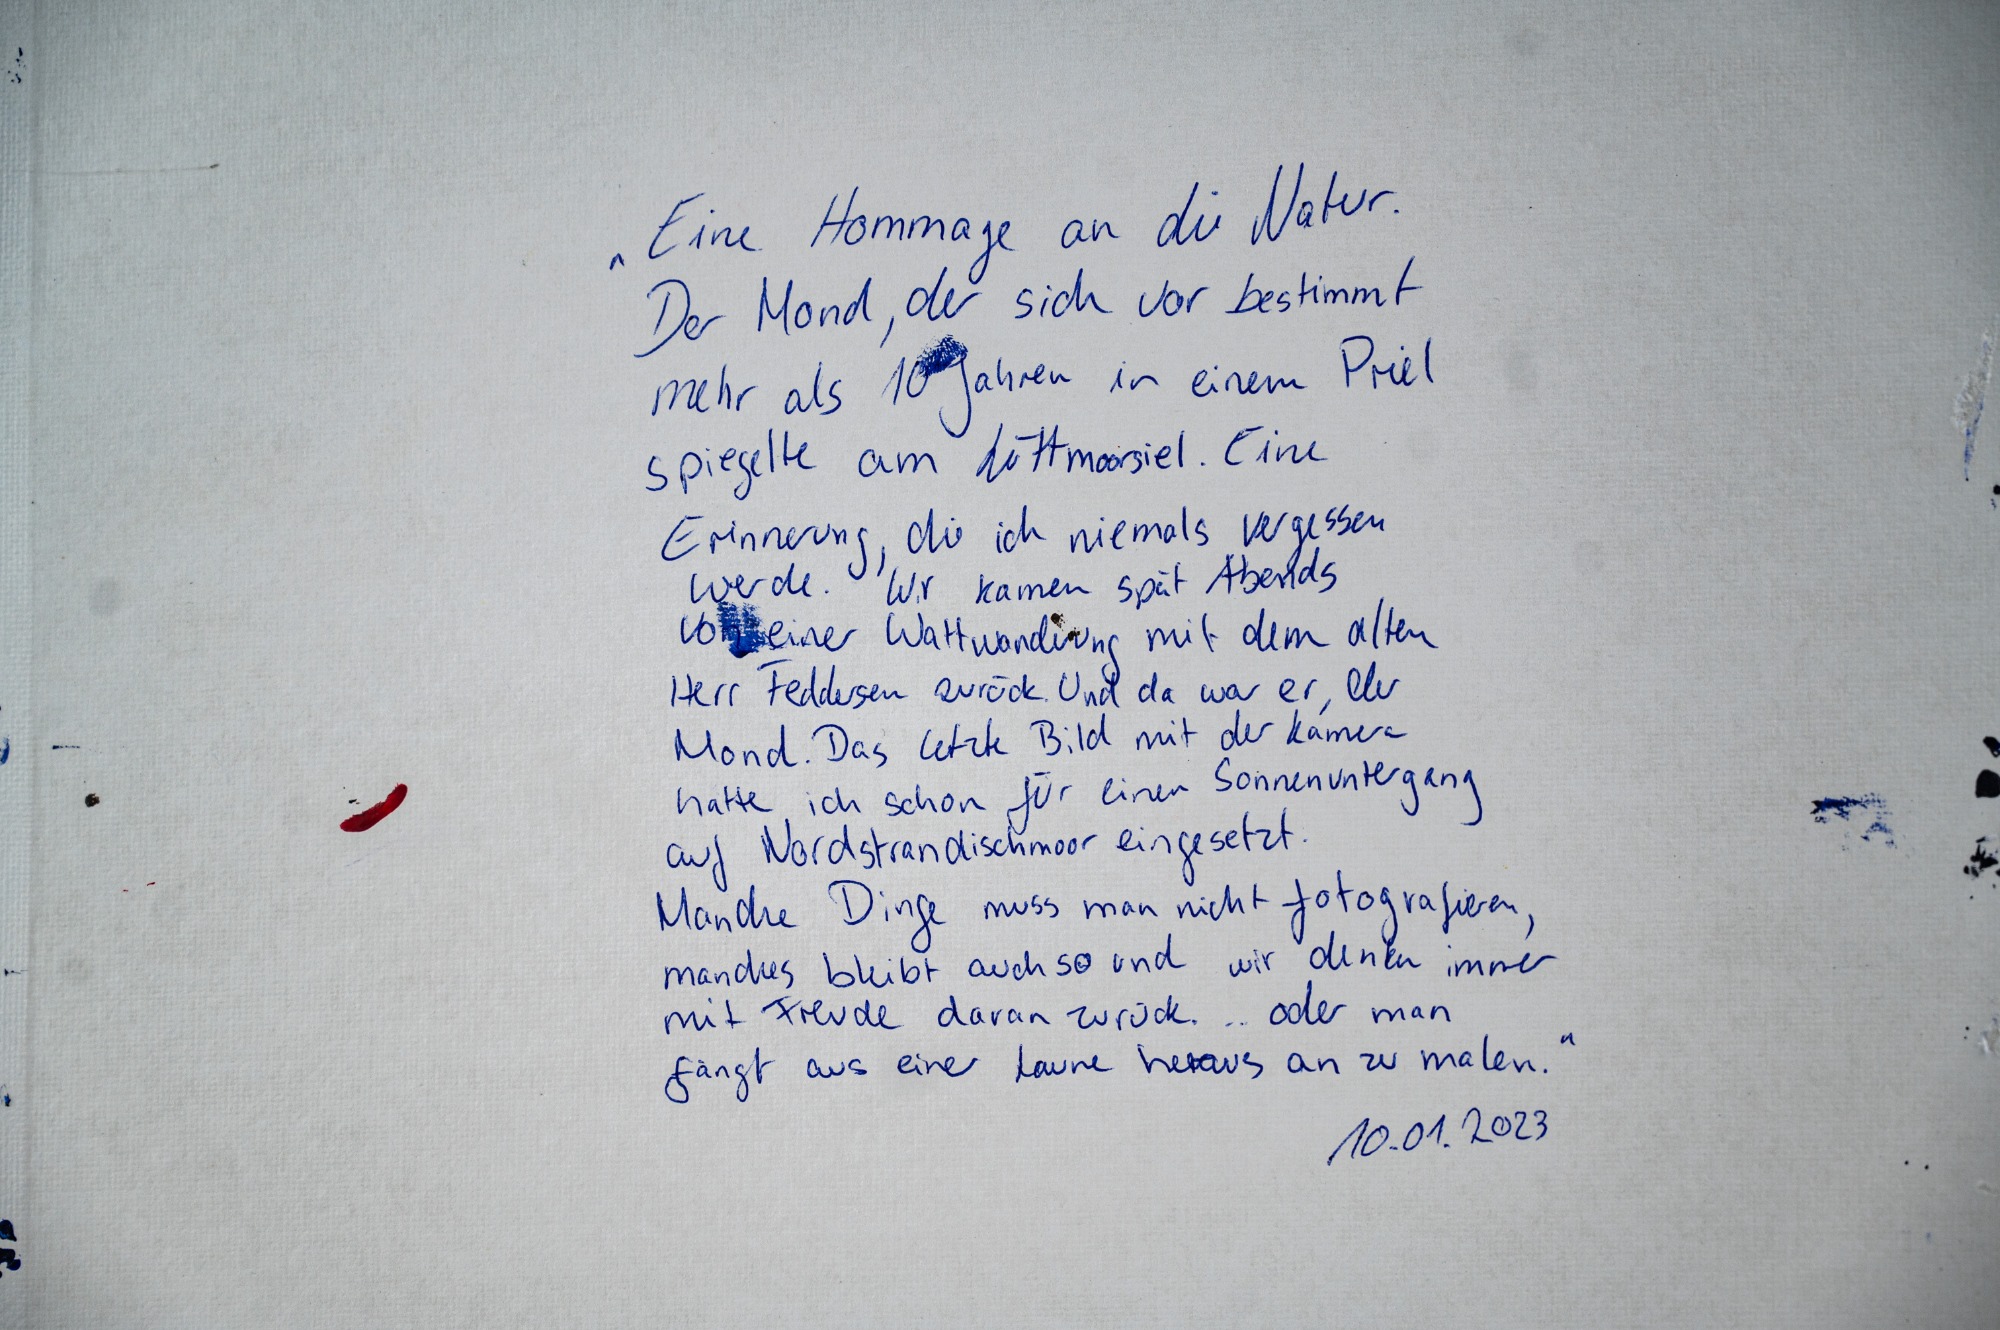 „Eine Hommage an die Natur.
Der Mond, der sich vor bestimmt
mehr als 10 Jahren in einem Priel
spiegelte am Lüttmoorsiel. Eine
Erinnerung, die ich niemals vergessen
werde. Wir kamen spät Abends
von einer Wattwanderung mit dem alten
Herr Feddersen zurück. Und da war er, der
Mond. Das letzte Bild mit der Kamera
hatte ich schon für einen Sonnenuntergang
auf Nordstrandischmoor eingesetzt.
Manche Dinge muss man nicht fotografieren,
manches bleibt auch so und wir denken immer
mit Freude daran zurück. .. oder man
fängt aus einer Laune heraus an zu malen.“
10.01.2023